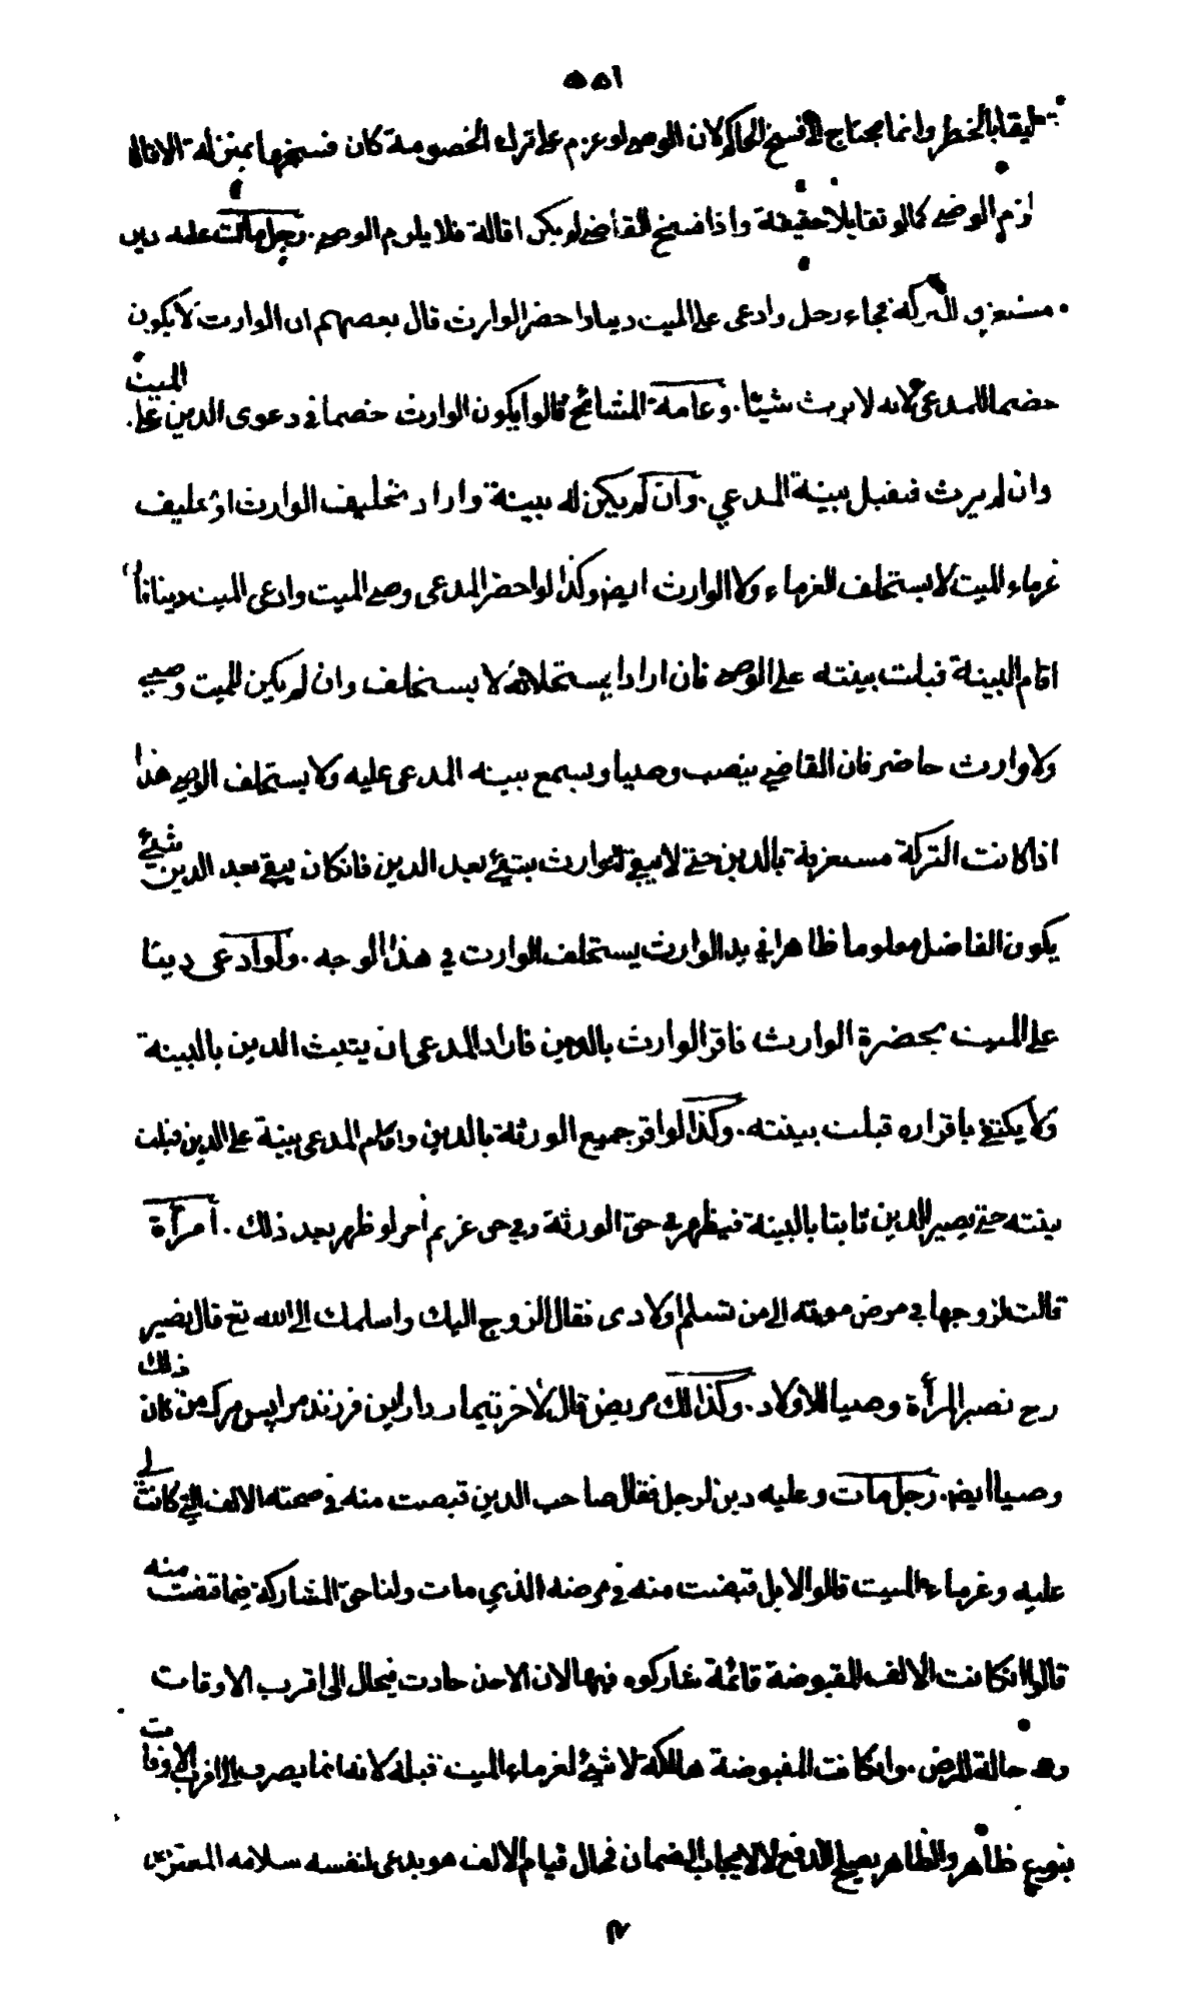 ٥٥١
تعليقا بالخطر وانما يحتاج الى فسخ الحاكم لان الوصي لو عزم على ترك الخصومة كان فسخها بمنزلة الاقالة
لزم الوصي كما لو تقايلا حقيقة واذا فسخ القاضي لم يكن اقالة فلا يلزم الوصي. رجل مات عليه دين
مستغرق التركة فجاء رجل وادعى على الميت دينا واحضر الوارث قال بعضهم ان الوارث لا يكون
خصما للمدعي لانه لا يرث شيئا. وعامة المشائخ قالوا يكون الوارث خصما في دعوى الدين على الميت
وان لم يرث فيقبل بينة المدعي. وان لم يكن له بينة واراد تحليف الوارث او تحليف
غرماء الميت لا يستحلف الغرماء ولا الوارث ايض وكذا لو احضر المدعى وصي الميت وادعى الميت دينا فاذا
اقام البينة قبلت بينته على الوصي فان ارادا يستحلافه لا يستحلف وان لم يكن للميت وصي
ولا وارث حاضر فان القاضي ينصب وصيا ويسمع بينه المدعى عليه ولا يستحلف الوصي هذا
اذا كانت التركة مستغرقة بالدين حتى لا يبقى للوارث شيئ بعد الدين فانكان يبقى بعد الدين شيئ
يكون الفاضل معلوما ظاهرا في يد الوارث يستحلف الوارث في هذا الوجه. ولو ادعى دينا
على الميت بحضرة الوارث فاقر الوارث بالدين فاراد المدعى ان يثبت الدين بالبينة
ولا يكتفي باقراره قبلت بينته. وكذا لو اقر جميع الورثة بالدين واقام المدعى بينة على الدين قبلت
بينته حتى يصير الدين ثابتا بالبينة فيظهر في حق الورثة وفي حق غريم آخر لو ظهر بعد ذلك. امرأة
قالت لزوجها في مرض موته الى من تسلم اولادى فقال الزوج اليك واسلمك الى الله تع قال نصير
رح تصير المرأة وصيا للاولاد. وكذا لك مريض قال لآخر تيمار دار اين فرزند مرا پس مرك من كان ذلك
وصيا ايض. رجل مات وعليه دين لرجل فقال صاحب الدين قبضت منه في صحته الالف التي كانت لي
عليه وغرماء الميت قالوا لا بل قبضت منه في مرضه الذي مات ولنا حق المشاركة فيما قبضت منه
قالوا انكانت الالف المقبوضة قائمة شاركوه فيها لان الاخذ حادث فيحال الى اقرب الاوقات
وهو حالة المرض. وانكانت المقبوضة هالكة لا شيئ لغرماء الميت قبله لانه انما يصرف الى اقرب الاوقات
بنوع ظاهر والظاهر يصلح للدفع لا لايجاب الضمان فحال قيام الالف هو يدعى لنفسه سلامه المقبوض